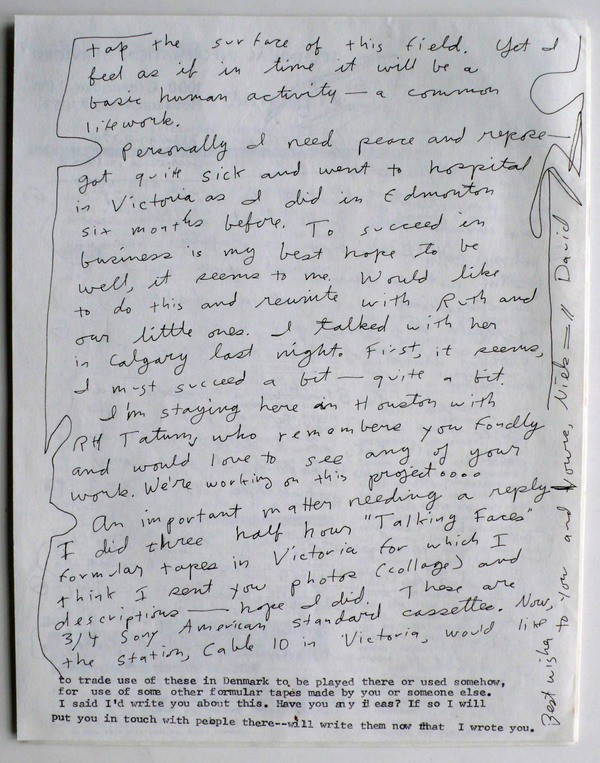 tap the surface of this field. Yet I
feel as if in time it will be a
basic human activity — a common
lifework.
Personally I need peace and repose —
got quite sick and went to hospital
in Victoria as I did in Edmonton
six months before. To succeed in
business is my best hope to be
well, it seems to me. Would like
to do this and reunite with Ruth and
our little ones. I talked with her
in Calgary last night. First, it seems,
I must succeed a bit — quite a bit.
I'm staying here in Houston with
RH Tatum, who remembers you fondly
and would love to see any of your
work. We're working on this project....
An important matter needing a reply
I did three half hour "Talking Faces"
formular tapes in Victoria for which I
think I sent you photos (collage) and
descriptions — hope I did. These are
3/4 Sony American standard cassettes. Now,
the station, Cable 10 in Victoria, would like
to trade use of these in Denmark to be played there or used somehow,
for use of some other formular tapes made by you or someone else.
I said I'd write you about this. Have you any ideas? If so I will
put you in touch with people there--will write them now that I wrote you.
Best wishes to you and yours, Niels = // David